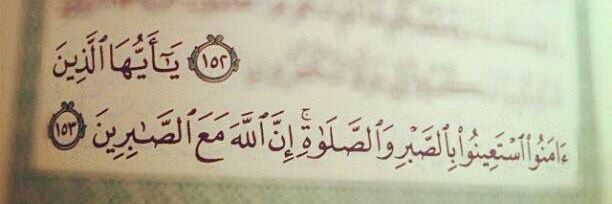 ١٥٢ يَٰٓأَيُّهَا ٱلَّذِينَ
ءَامَنُواْ ٱسۡتَعِينُواْ بِٱلصَّبۡرِ وَٱلصَّلَوٰةِۚ إِنَّ ٱللَّهَ مَعَ ٱلصَّٰبِرِينَ ١٥٣